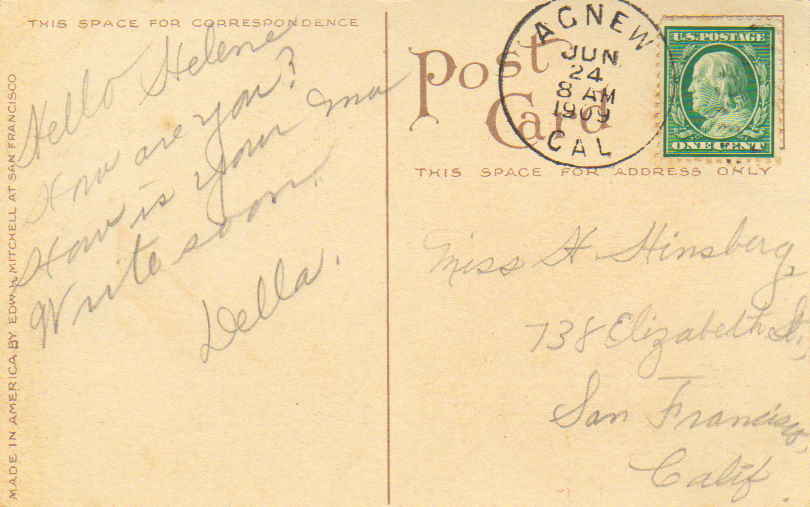 THIS SPACE FOR CORRESPONDENCE
Hello Helene
How are you?
How is your ma
Write soon.
Della.
MADE IN AMERICA BY EDW. H. MITCHELL AT SAN FRANCISCO
Post
Card
AGNEW
JUN
24
8 AM
1909
CAL
U.S. POSTAGE
ONE CENT
THIS SPACE FOR ADDRESS ONLY
Miss H. Hinsberg,
738 Elizabeth St,
San Francisco,
Calif.